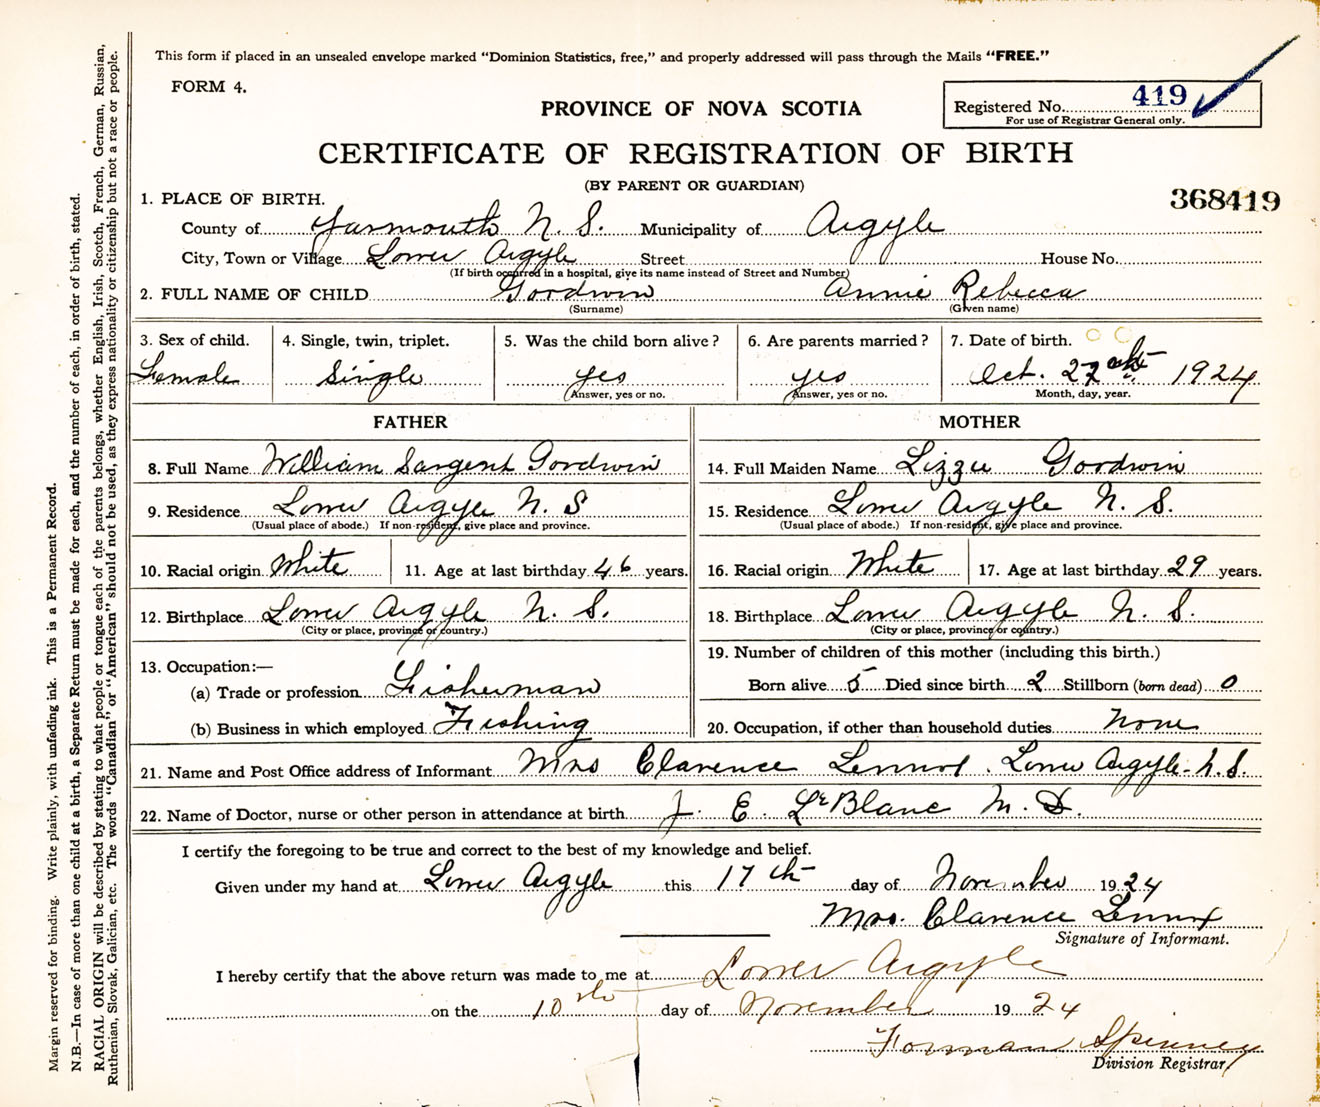 This form if placed in an unsealed envelope marked "Dominion Statistics, free," and properly addressed will pass through the Mails "FREE."
FORM 4.
PROVINCE OF NOVA SCOTIA
Registered No. 419
For use of Registrar General only.
CERTIFICATE OF REGISTRATION OF BIRTH
(BY PARENT OR GUARDIAN)
368419
1. PLACE OF BIRTH.
County of Yarmouth N. S. Municipality of Argyle
City, Town or Village Lower Argyle Street House No.
(If birth occurred in a hospital, give its name instead of Street and Number)
2. FULL NAME OF CHILD Goodwin Annie Rebecca
(Surname) (Given name)
3. Sex of child. 4. Single, twin, triplet. 5. Was the child born alive? 6. Are parents married? 7. Date of birth.
Female Single yes yes Oct. 27 1924
Answer, yes or no. Answer, yes or no. Month, day, year.
FATHER MOTHER
8. Full Name William Sargent Goodwin 14. Full Maiden Name Lizzie Goodwin
9. Residence Lower Argyle N. S 15. Residence Lower Argyle N. S.
(Usual place of abode.) If non-resident, give place and province. (Usual place of abode.) If non-resident, give place and province.
10. Racial origin White 11. Age at last birthday 46 years. 16. Racial origin White 17. Age at last birthday 29 years.
12. Birthplace Lower Argyle N. S. 18. Birthplace Lower Argyle N. S.
(City or place, province or country.) (City or place, province or country.)
13. Occupation:— 19. Number of children of this mother (including this birth.)
(a) Trade or profession Fisherman Born alive 5 Died since birth 2 Stillborn (born dead) 0
(b) Business in which employed Fishing 20. Occupation, if other than household duties None
21. Name and Post Office address of Informant Mrs Clarence Lennox. Lower Argyle- N. S.
22. Name of Doctor, nurse or other person in attendance at birth J. E. LeBlanc M. D.
I certify the foregoing to be true and correct to the best of my knowledge and belief.
Given under my hand at Lower Argyle this 17th day of November 1924
Mrs. Clarence Lennox
Signature of Informant.
I hereby certify that the above return was made to me at Lower Argyle
on the 10th day of November 1924
Forman Spinney
Division Registrar
Margin reserved for binding. Write plainly, with unfading ink. This is a Permanent Record.
N.B.—In case of more than one child at a birth, a Separate Return must be made for each, and the number of each, in order of birth, stated.
RACIAL ORIGIN will be described by stating to what people or tongue each of the parents belongs, whether English, Irish, Scotch, French, German, Russian,
Ruthenian, Slovak, Galician, etc. The words "Canadian" or "American" should not be used, as they express nationality or citizenship but not a race or people.